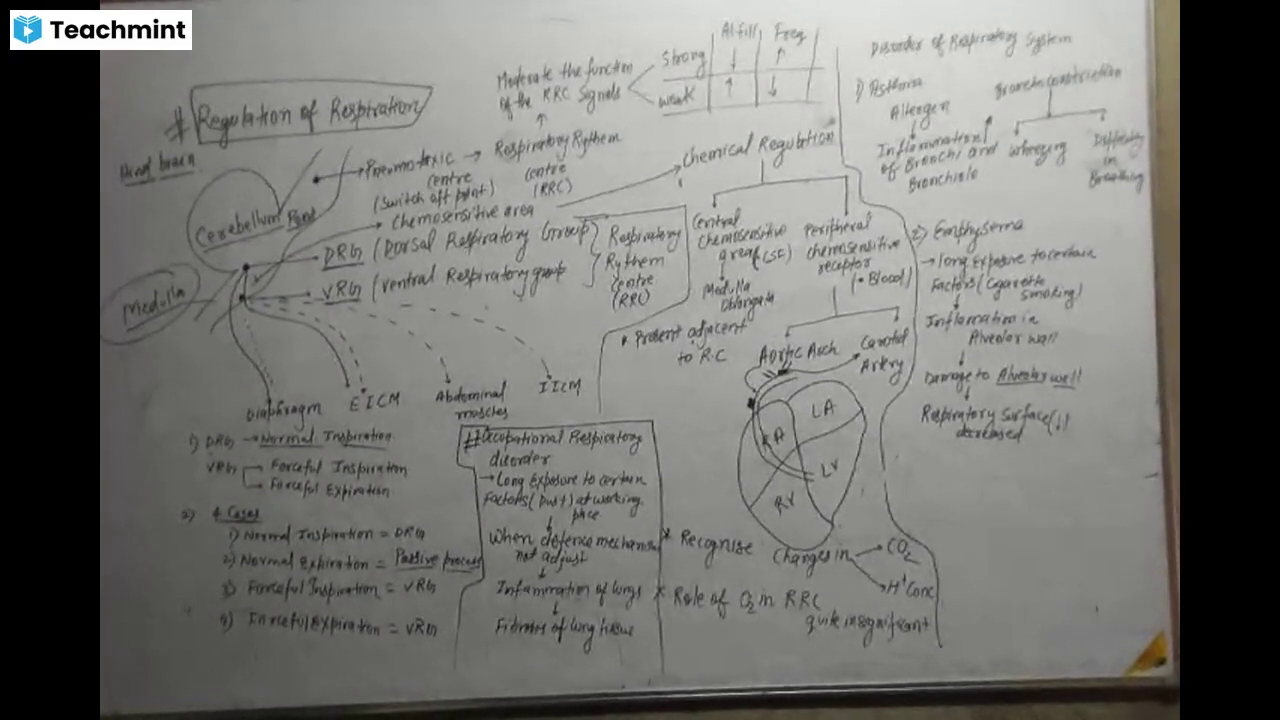 Teachmint
# Regulation of Respiration
Hind brain
Cerebellum
Pons
Medulla
Pneumotaxic
centre
(Switch off point)
Respiratory Rythem
centre
(RRC)
Moderate the function
of the RRC Signals
Strong
weak
Al.fill
Freq
↓ ↑
↑ ↓
Chemosensitive area
DRG (Dorsal Respiratory Group)
VRG (Ventral Respiratory group)
Respiratory
Rythem
Centre
(RRC)
Diaphragm
EICM
Abdominal
muscles
IICM
1) DRG → Normal Inspiration
VRG Forceful Inspiration
Forceful Expiration
2) 4 Cases
1) Normal Inspiration = DRG
2) Normal Expiration = Passive process
3) Forceful Inspiration = VRG
4) Forceful Expiration = VRG
# Occupational Respiratory
disorder
→ Long Exposure to certain
Factors (Dust) at working
place
↓
When defence mechanism
not adjust
↓
Inflammation of lungs
↓
Fibrosis of lung tissue
Chemical Regulation
Central
Chemosensitive
area
Medulla
Oblongata
* Present adjacent
to R.C
Peripheral
chemosensitive
receptor
(• Blood)
Aortic Arch
Carotid
Artery
LA
RA
LV
RV
* Recognise
Changes in
CO2
H+ Conc
* Role of O2 in RRC
quite insignificant
Disorder of Respiratory System
1) Asthma
Allergen
↓
Inflammation
of Bronchi and
Bronchiole
Bronchoconstriction
wheezing
Difficulty
in
Breathing
2) Emphysema
→ long Exposure to certain
Factors (Cigarette
smoking)
↓
Inflamation in
Alveolar wall
↓
Damage to Alveolar wall
↓
Respiratory Surface (↓)
decreased